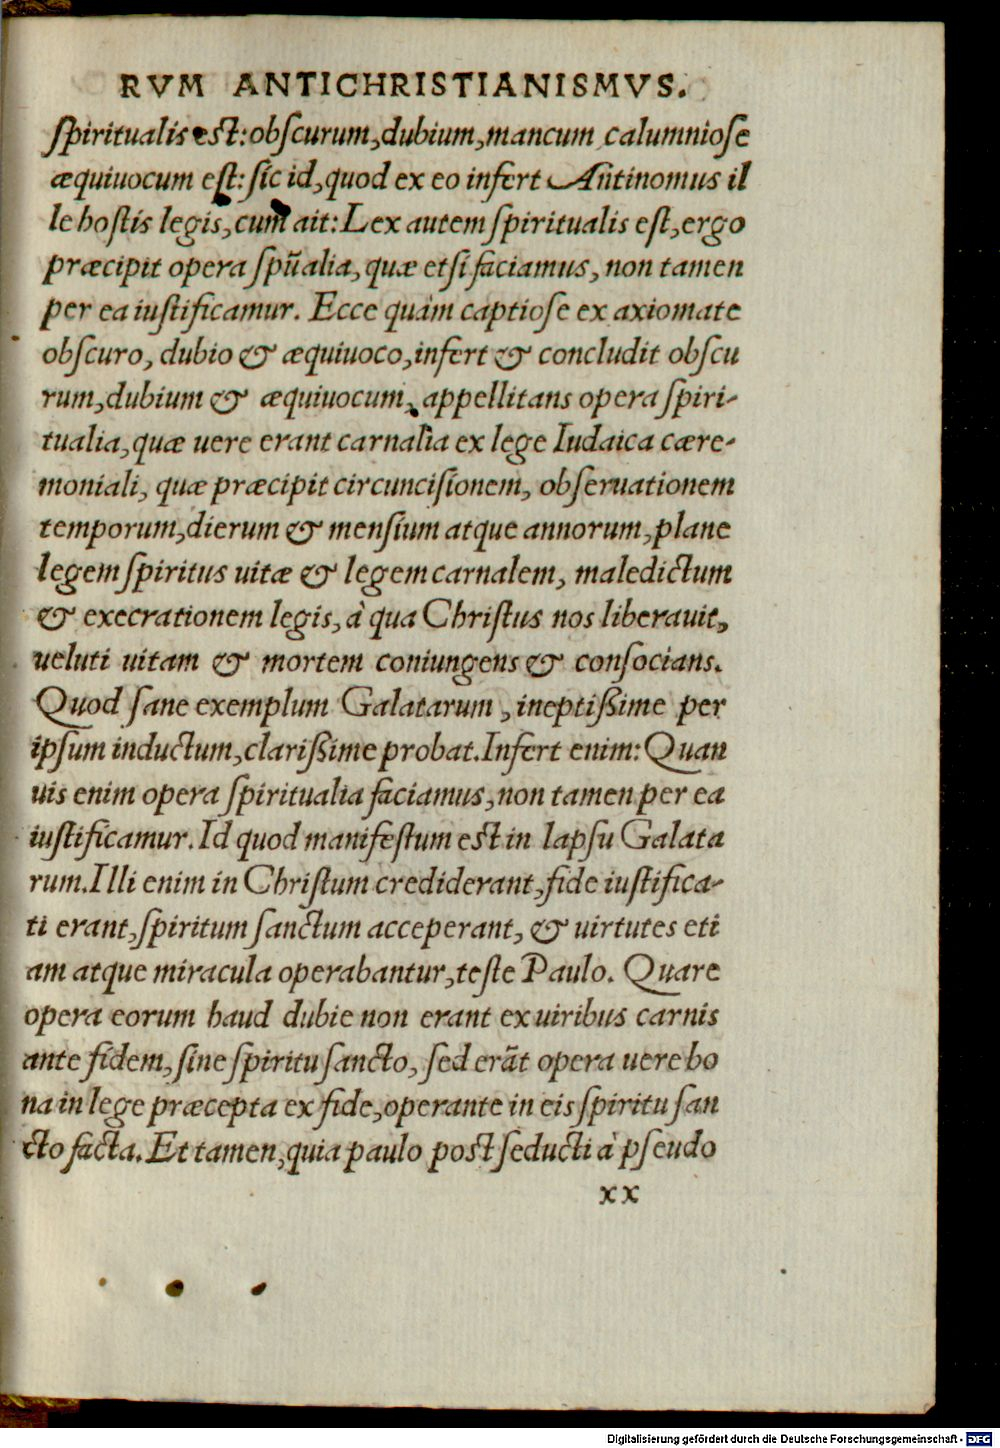 RVM ANTICHRISTIANISMVS.
ſpiritualis eſt: obſcurum, dubium, mancum calumnioſe
æquiuocum eſt: ſic id, quod ex eo infert Antinomus il
le hoſtis legis, cum ait: Lex autem ſpiritualis eſt, ergo
præcipit opera ſpũalia, quæ etſi faciamus, non tamen
per ea iuſtificamur. Ecce quàm captioſe ex axiomate
obſcuro, dubio & æquiuoco, infert & concludit obſcu
rum, dubium & æquiuocum, appellitans opera ſpiri-
tualia, quæ uere erant carnalia ex lege Iudaica cære-
moniali, quæ præcipit circunciſionem, obſeruationem
temporum, dierum & menſium atque annorum, plane
legem ſpiritus uitæ & legem carnalem, maledictum
& execrationem legis, à qua Chriſtus nos liberauit,
ueluti uitam & mortem coniungens & conſocians.
Quod ſane exemplum Galatarum, ineptißime per
ipſum inductum, clarißime probat. Infert enim: Quan
uis enim opera ſpiritualia faciamus, non tamen per ea
iuſtificamur. Id quod manifeſtum eſt in lapſu Galata
rum. Illi enim in Chriſtum crediderant, fide iuſtifica-
ti erant, ſpiritum ſanctum acceperant, & uirtutes eti
am atque miracula operabantur, teſte Paulo. Quare
opera eorum haud dubie non erant ex uiribus carnis
ante fidem, ſine ſpiritu ſancto, ſed erãt opera uere bo
na in lege præcepta ex fide, operante in eis ſpiritu ſan
cto facta. Et tamen, quia paulo poſt ſeducti à pſeudo
xx
Digitalisierung gefördert durch die Deutsche Forschungsgemeinschaft - DFG